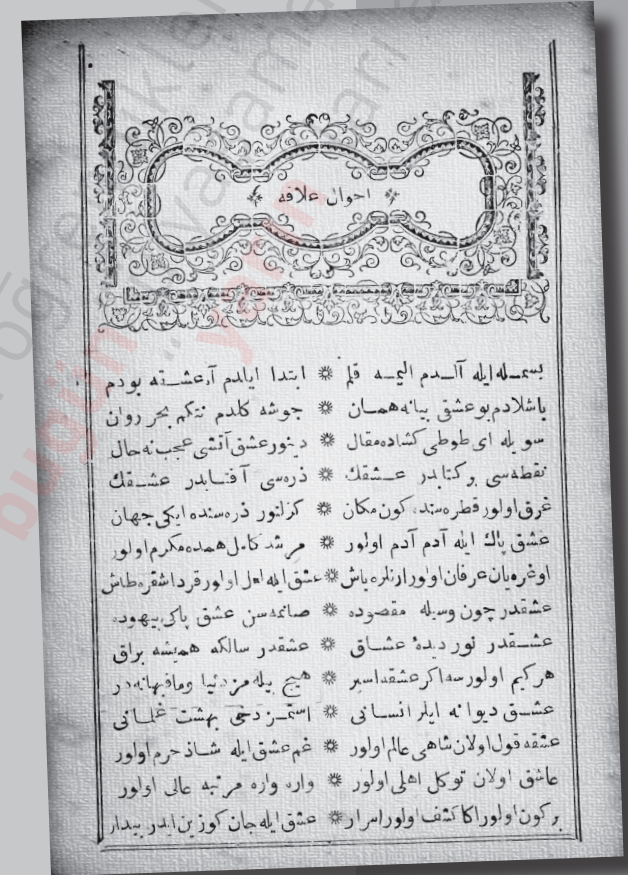 احوال علاقه
بسمله ایله آلدم الیمه قلم ابتدا ایلدم آد عشقه بودم
باشلادم بو عشقی بیانه همان جوشه كلدم نتكم بحر روان
سویله ای طوطی كشاده مقال دینور عشق آتشی عجب نه حال
نقطه‌سی بر كتابدر عشقك ذره‌سی آفتابدر عشقك
غرق اولور قطره‌سنده كون مكان كزلنور ذره‌سنده ایكی جهان
عشق پاك ایله آدم آدم اولور مرشد كامل همده مكرم اولور
اوغریان عرفان اولور ارنلره باش عشق ایله لعل اولور قرداشقره طاش
عشقدر چون وسیله مقصوده صانمه سن عشق پاكی بیهوده
عشقدر نور دیدهٔ عشاق عشقدر سالكه همیشه براق
هر كیم اولورسه اكر عشقه اسیر هیچ بیله‌مز دنیا ومافیها نه‌در
عشق دیوانه ایلر انسانی استمز دخی بهشت غلمانی
عشقه قول اولان شاهی عالم اولور غم عشق ایله شاذ حرم اولور
عاشق اولان توكل اهلی اولور واره واره مرتبه عالی اولور
بر كون اولور اكا كشف اولور اسرار عشق ایله جان كوزین ایدر بیدار
bugün
yarın